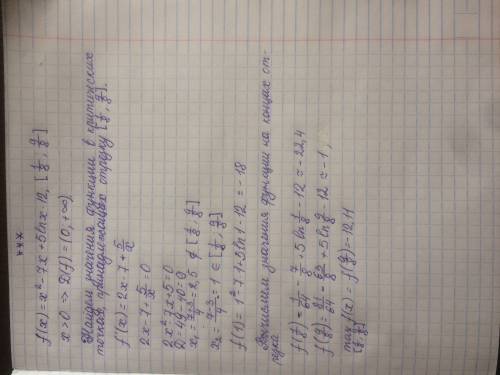 ***
f(x) = x² - 7x + 5 ln x - 12, [1/8; 9/8]
x > 0 ⇒ D(f) = (0, +∞)
Найдем значения функции в критических
точках, принадлежащих отрезку [1/8; 9/8].
f'(x) = 2x - 7 + 5/x
2x - 7 + 5/x = 0
2x² - 7x + 5 = 0
D = 49 - 40 = 9
x₁ = (7+3)/4 = 2,5 ∉ [1/8; 9/8]
x₂ = (7-3)/4 = 1 ∈ [1/8; 9/8]
f(1) = 1² - 7·1 + 5 ln 1 - 12 = - 18
Вычислим значения функции на концах от-
резка
f(1/8) = 1/64 - 7/8 + 5 ln 1/8 - 12 ≈ - 22,4
f(9/8) = 81/64 - 63/8 + 5 ln 9/8 - 12 ≈ - 1,
max f(x) = f(9/8) = -12,11
[1/8; 9/8]